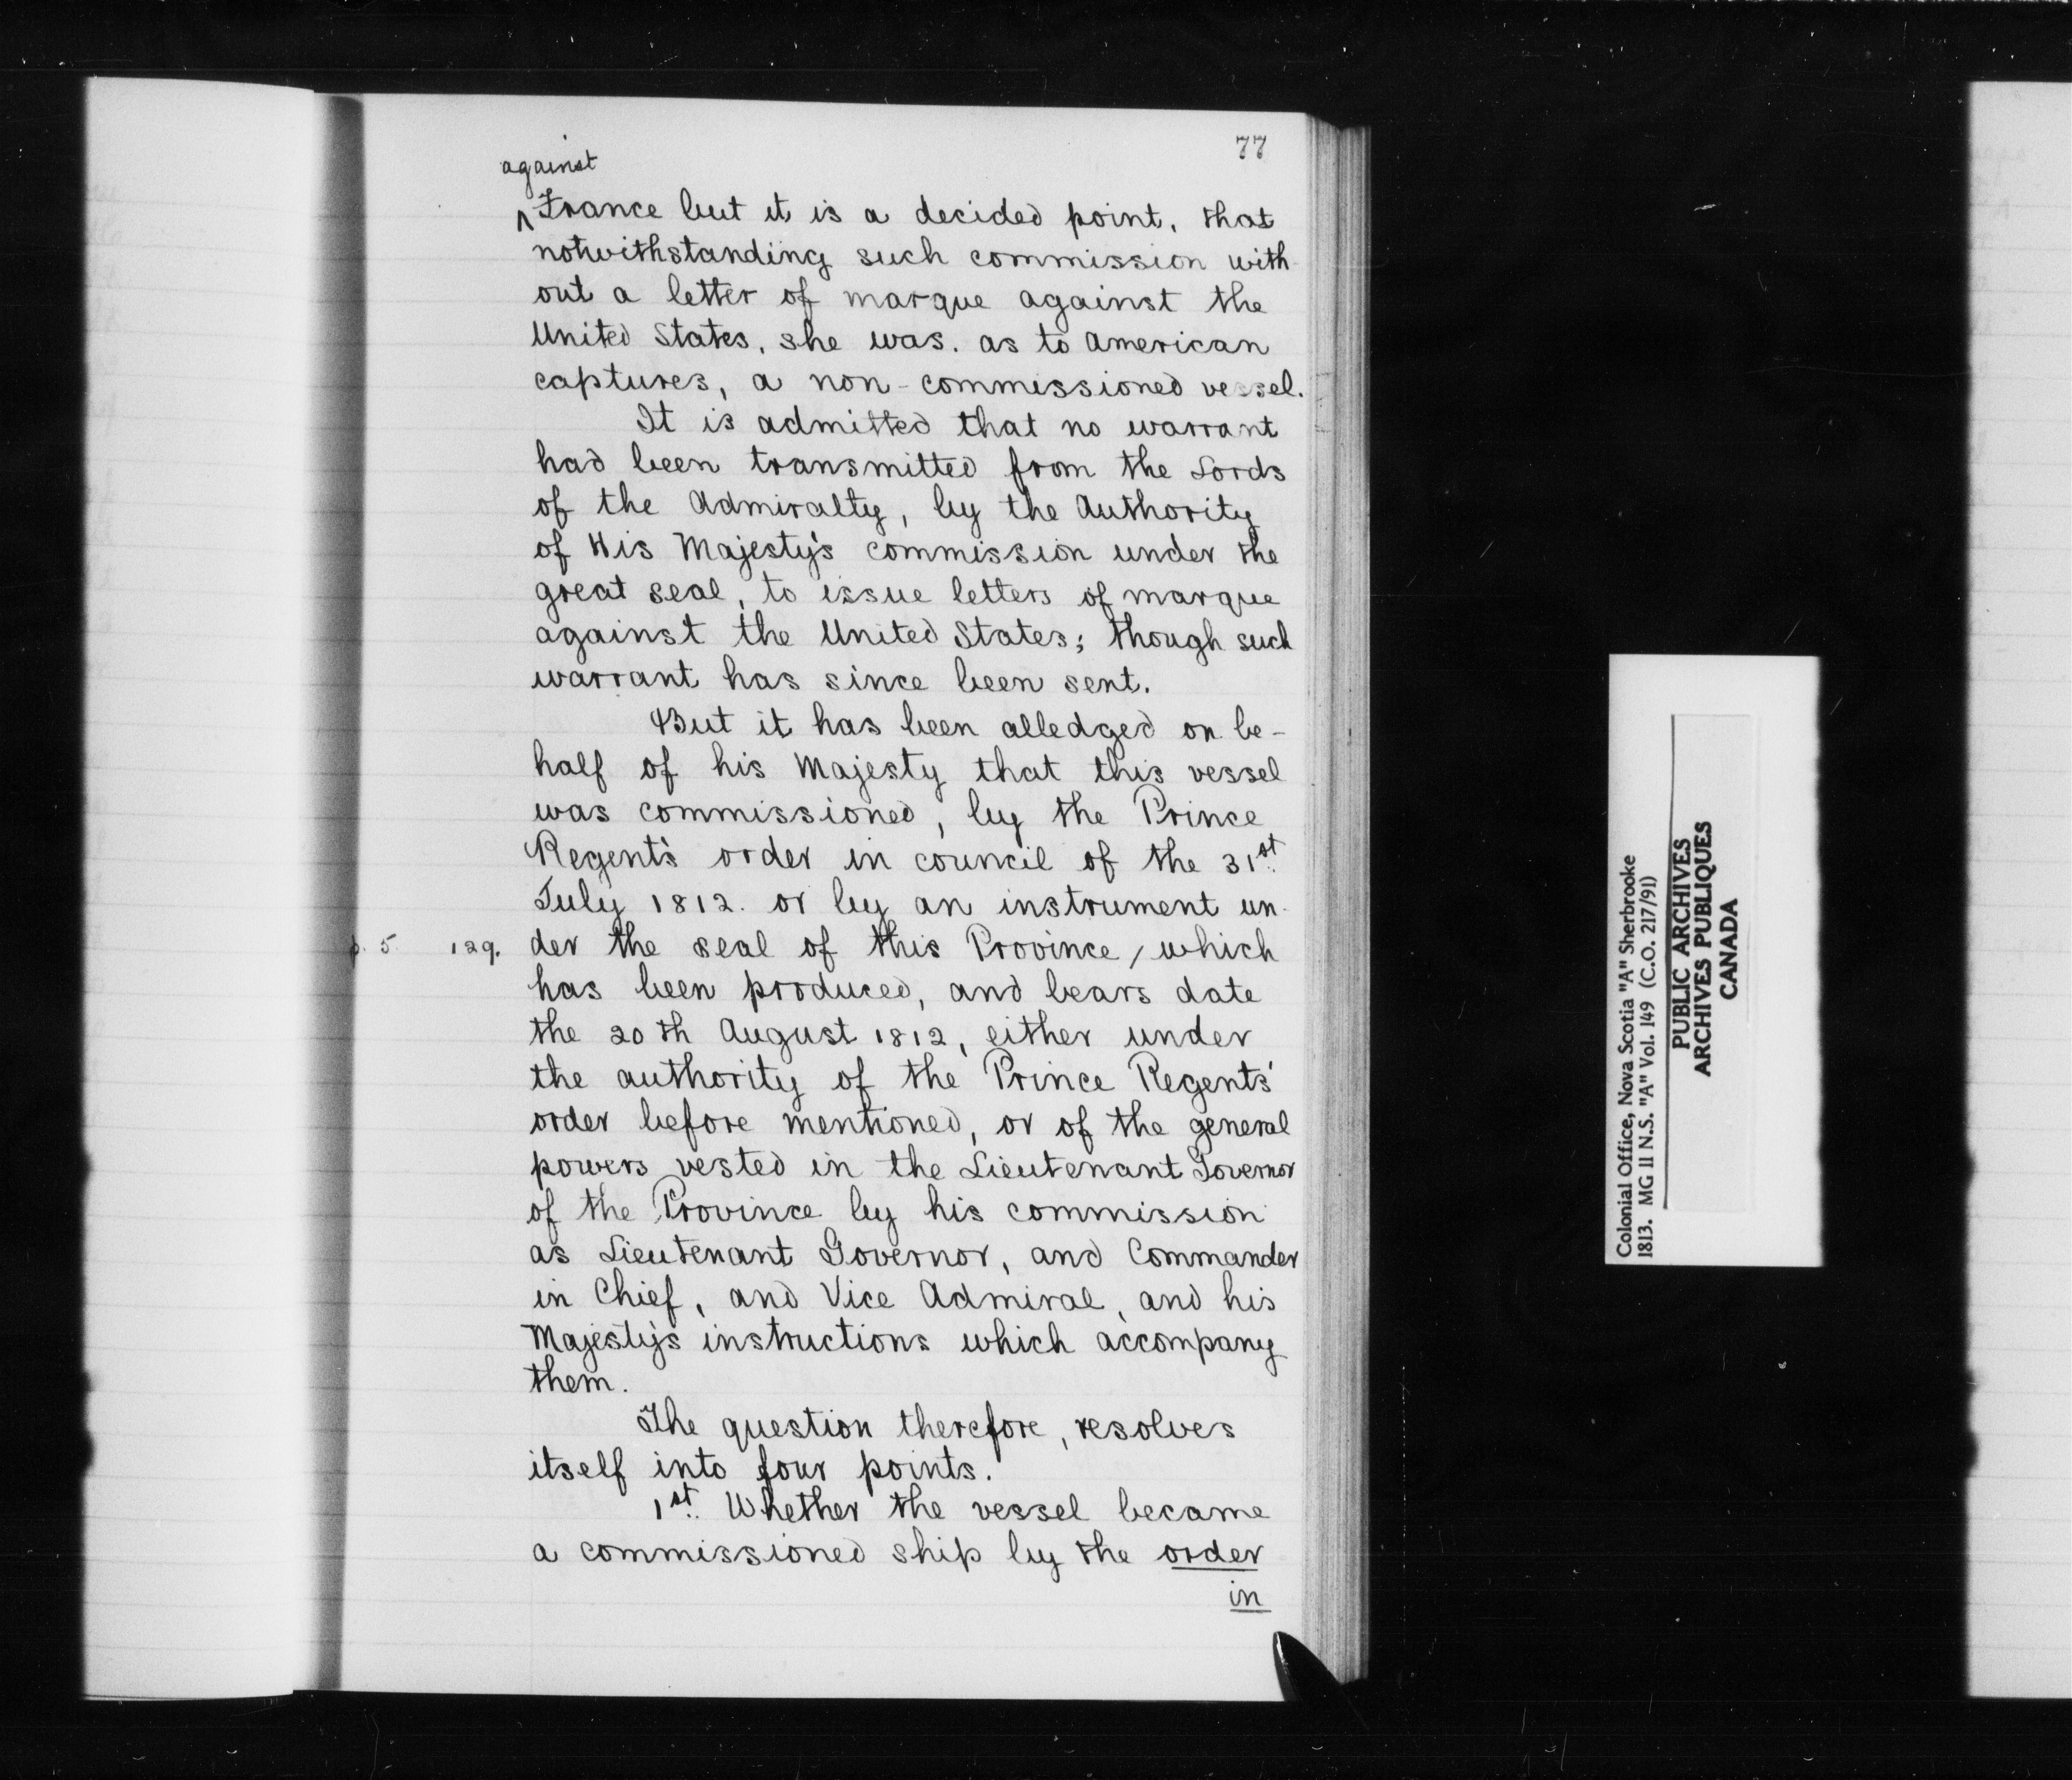 77
against
^France but it is a decided point, that
notwithstanding such commission with-
out a letter of marque against the
United States, she was. as to American
captures, a non-commissioned vessel.
It is admitted that no warrant
had been transmitted from the Lords
of the Admiralty, by the Authority
of His Majesty's commission under the
great seal, to issue letters of marque
against the United States; though such
warrant has since been sent.
But it has been alledged on be-
half of his Majesty that this vessel
was commissioned, by the Prince
Regent's order in council of the 31st
July 1812. or by an instrument un-
p. 5 129. der the seal of this Province, which
has been produced, and bears date
the 20th August 1812, either under
the authority of the Prince Regents'
order before mentioned, or of the general
powers vested in the Lieutenant Governor
of the Province by his commission
as Lieutenant Governor, and Commander
in Chief, and Vice Admiral, and his
Majesty's instructions which accompany
them.
The question therefore, resolves
itself into four points.
1st. Whether the vessel became
a commissioned ship by the order
in
Colonial Office, Nova Scotia "A" Sherbrooke
1813. MG 11 N.S. "A" Vol. 149 (C.O. 217/91)
PUBLIC ARCHIVES
ARCHIVES PUBLIQUES
CANADA